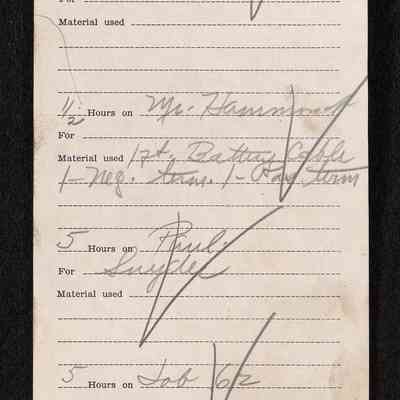 For
Material used
1 1/2 Hours on Mr. Hammond
For
Material used 1 7ft. Battery Cable
1 - Neg. term. 1 - Pos term
5 Hours on Phil.
For Snyder
Material used
5 Hours on Job 62